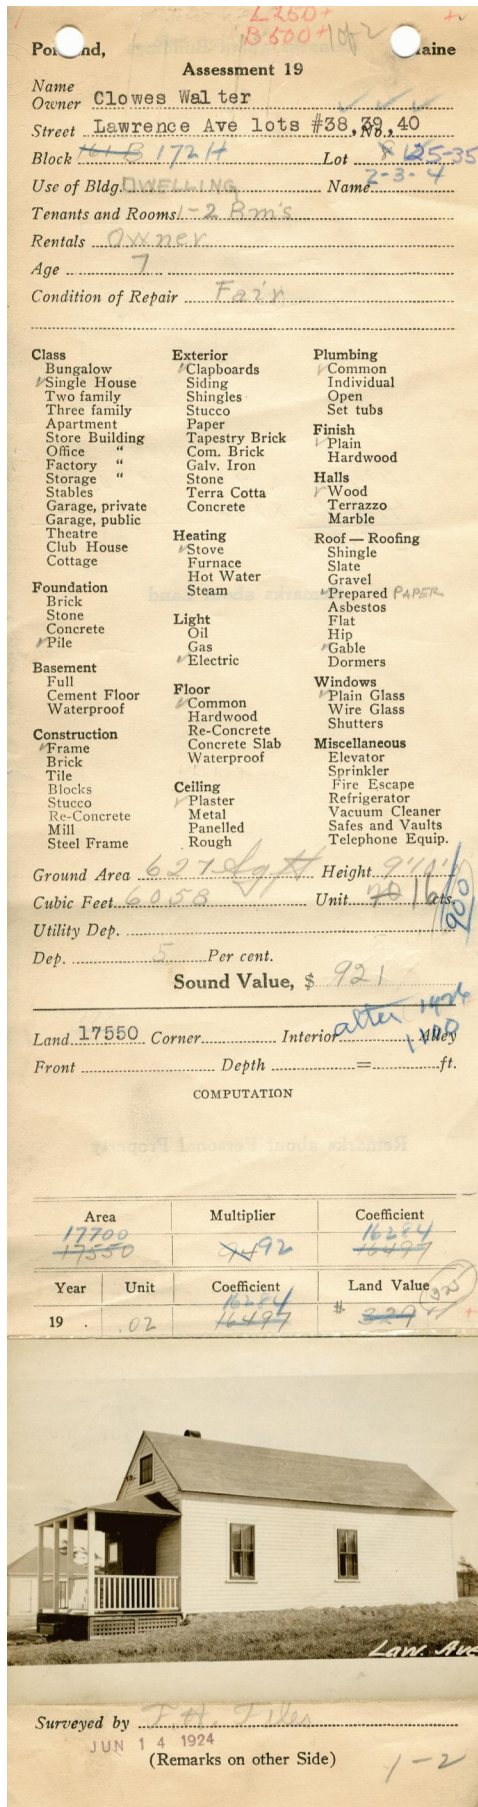 L 250 +
B 500 + 1 of 2
Portland, Maine
Assessment 19
Name
Owner Clowes Walter
Street Lawrence Ave lots #38, No. 39, 40
Block 161 B 172 H Lot 8 125-35
2-3-4
Use of Bldg. DWELLING Name
Tenants and Rooms 1-2 Rm's
Rentals Owner
Age 7
Condition of Repair Fair
Class
Bungalow
✓Single House
Two family
Three family
Apartment
Store Building
Office "
Factory "
Storage "
Stables
Garage, private
Garage, public
Theatre
Club House
Cottage
Foundation
Brick
Stone
Concrete
✓Pile
Basement
Full
Cement Floor
Waterproof
Construction
✓Frame
Brick
Tile
Blocks
Stucco
Re-Concrete
Mill
Steel Frame
Exterior
✓Clapboards
Siding
Shingles
Stucco
Paper
Tapestry Brick
Com. Brick
Galv. Iron
Stone
Terra Cotta
Concrete
Heating
✓Stove
Furnace
Hot Water
Steam
Light
Oil
Gas
✓Electric
Floor
✓Common
Hardwood
Re-Concrete
Concrete Slab
Waterproof
Ceiling
✓Plaster
Metal
Panelled
Rough
Plumbing
✓Common
Individual
Open
Set tubs
Finish
✓Plain
Hardwood
Halls
✓Wood
Terrazzo
Marble
Roof — Roofing
Shingle
Slate
Gravel
✓Prepared PAPER
Asbestos
Flat
Hip
✓Gable
Dormers
Windows
✓Plain Glass
Wire Glass
Shutters
Miscellaneous
Elevator
Sprinkler
Fire Escape
Refrigerator
Vacuum Cleaner
Safes and Vaults
Telephone Equip.
Ground Area 627 Sq ft Height
Cubic Feet 6058 Unit 16 cts.
900
Utility Dep.
Dep. 5 Per cent.
Sound Value, $ 921
after 1926
1100
Land 17550 Corner Interior Alley
Front Depth = ft.
COMPUTATION
Area Multiplier Coefficient
17700 16284
17550 94 92 16497
Year Unit Coefficient Land Value
16284
19 . .02 16497 # 329
Law. Ave
Surveyed by F. H. Files
JUN 14 1924
(Remarks on other Side)
1-2